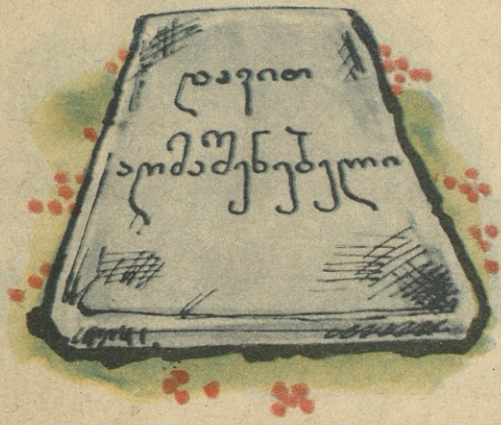 დავით
აღმაშენებელი